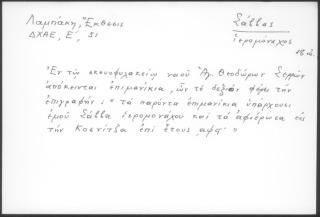 Λαμπάκη, Ἔκθεσις
ΔΧΑΕ, Ε΄, 51
Σάββας
ἱερομόναχος
18 αἰ.
Ἐν τῷ σκευοφυλακείῳ ναοῦ Ἁγ. Θεοδώρων Σερρῶν
ἀπόκεινται ἐπιμανίκια, ὧν τὸ δεξιὸν φέρει τὴν
ἐπιγραφήν: "τὰ παρόντα ἐπιμανίκια ὑπάρχουσι
ἐμοῦ Σάββα ἱερομονάχου καὶ τὰ ἀφιέρωσα εἰς
τὴν Κοσνίτζα ἐπὶ ἔτους